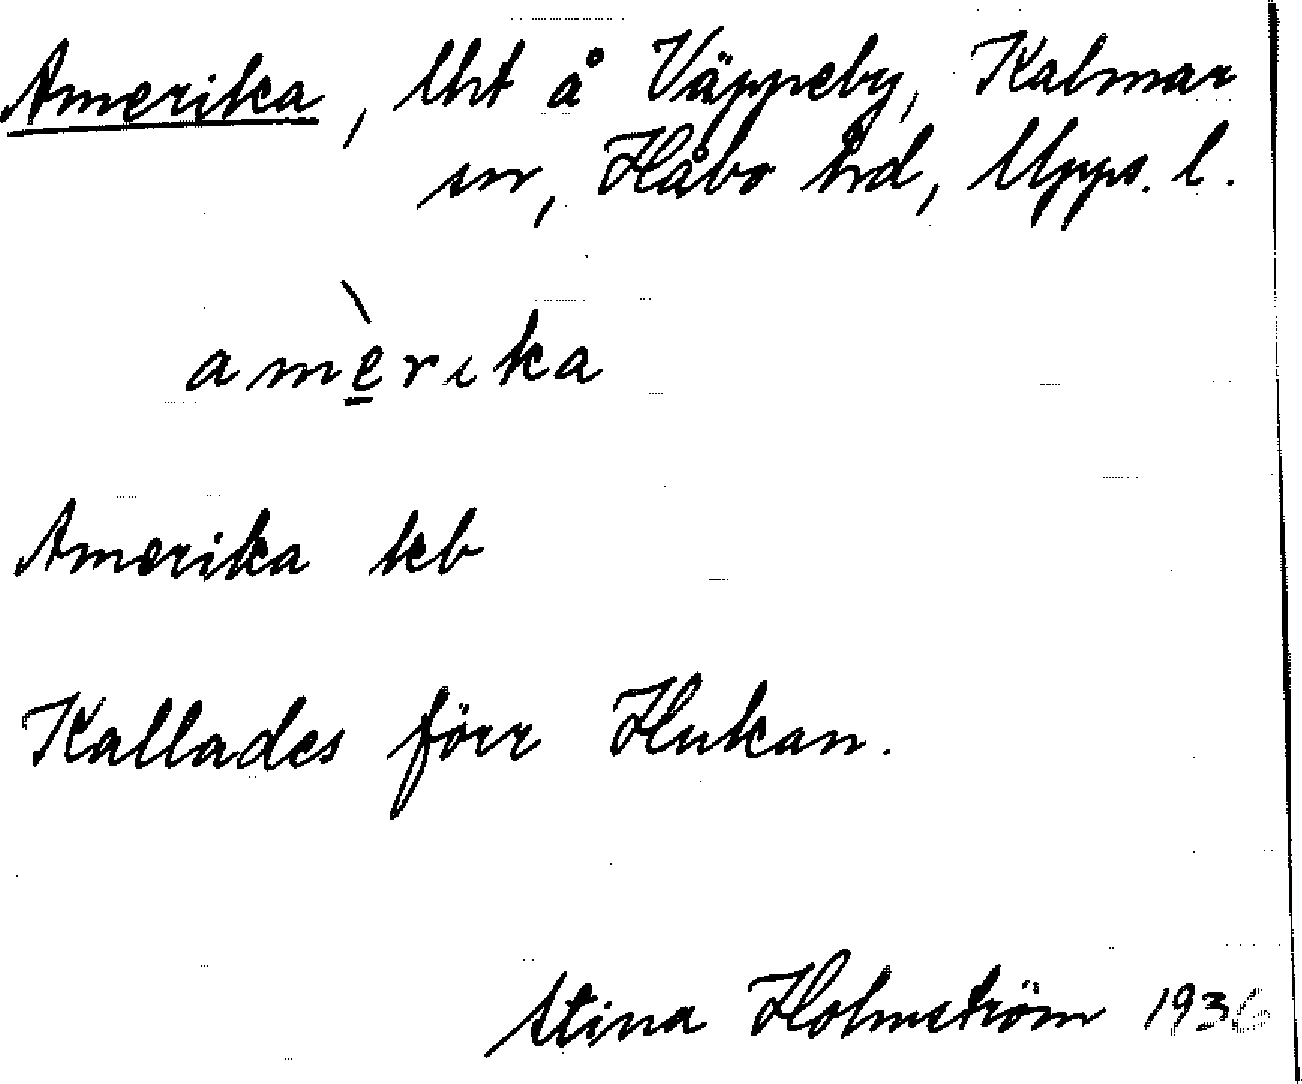 Amerika, lht å Väppeby, Kalmar
sn, Håbo hd, Upps. l.
amèrika
Amerika kb
Kallades förr Hukan.
Stina Holmström 1936